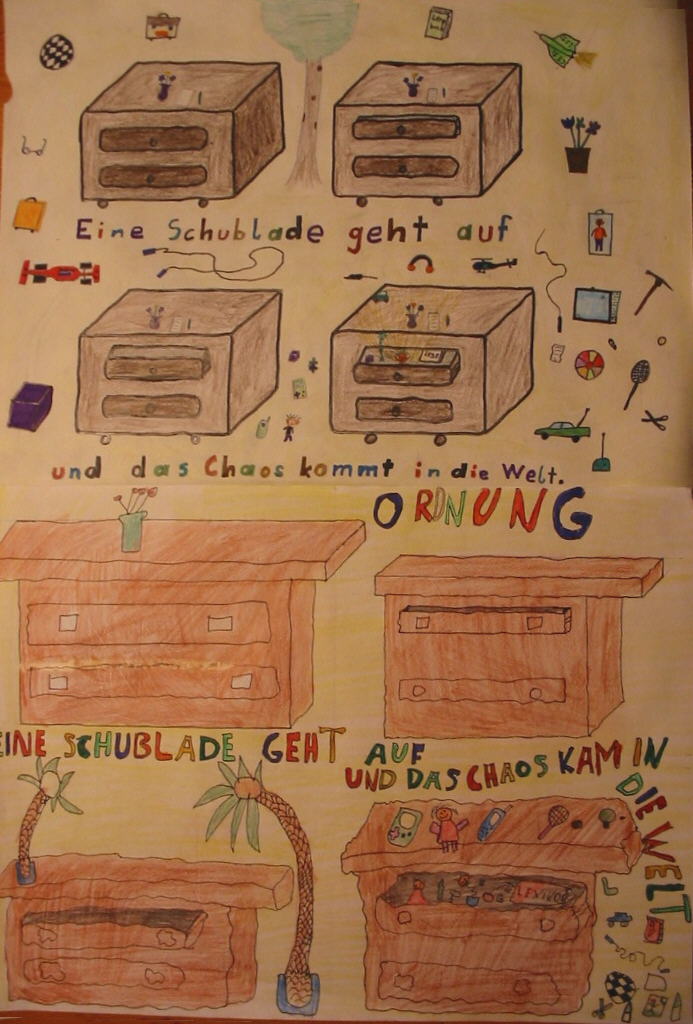 Eine Schublade geht auf
und das Chaos kommt in die Welt.
ORDNUNG
EINE SCHUBLADE GEHT AUF
UND DAS CHAOS KAM IN
DIE WELT
LEXIKON